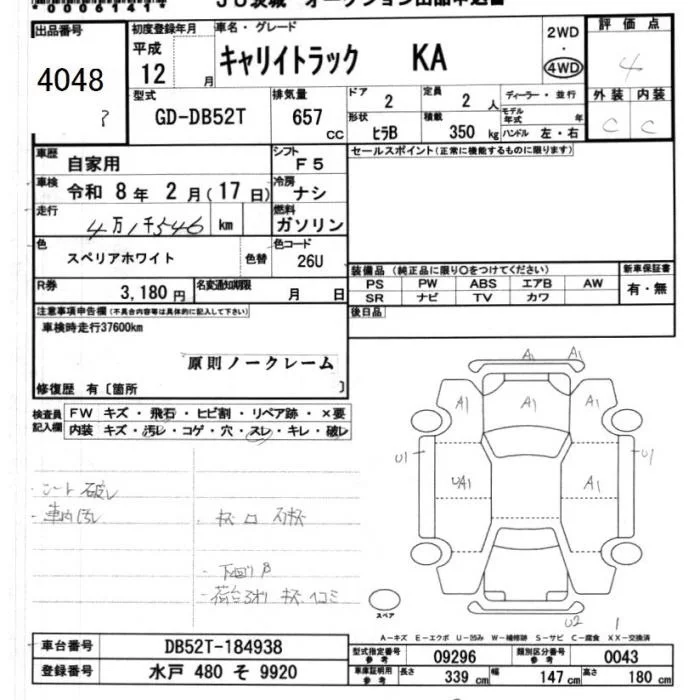 出品番号
4048
初度登録年月
平成
12 月
車名・グレード
キャリイトラック KA
2WD
・
4WD
評価点
4
外装 内装
C C
型式
GD-DB52T
排気量
657 cc
ドア
2
定員
2 人
ディーラー・並行
形状
ヒラB
積載
350 kg
モデル年式 年
ハンドル 左・右
車歴
自家用
シフト
F5
セールスポイント(正常に機能するものに限ります)
車検
令和 8 年 2 月(17 日)
冷房
ナシ
走行
4万1千546 km
燃料
ガソリン
色
スペリアホワイト
色替
色コード
26U
装備品(純正品に限り○をつけてください)
新車保証書
PS PW ABS エアB AW
SR ナビ TV カワ
有・無
R券
3,180 円
名変通知期限
月 日
後日品
注意事項申告欄(不具合内容等は具体的に記入して下さい)
車検時走行37600km
原則ノークレーム
修復歴 有〔箇所 〕
検査員記入欄
FW キズ・飛石・ヒビ割・リペア跡・×要
内装 キズ・汚レ・コゲ・穴・スレ・キレ・破レ
A1 A1
A1 A1 A1
U1 UA1 A1 U1
U2 1
・シート破レ
・車内汚レ
・下回りサビ
スペア
A-キズ E-エクボ U-凹み W-補修跡 S-サビ C-腐食 XX-交換済
車台番号
DB52T-184938
型式指定番号
参考
09296
類別区分番号
参考
0043
登録番号
水戸 480 そ 9920
車庫証明用
参考
長さ
339 cm
幅
147 cm
高さ
180 cm